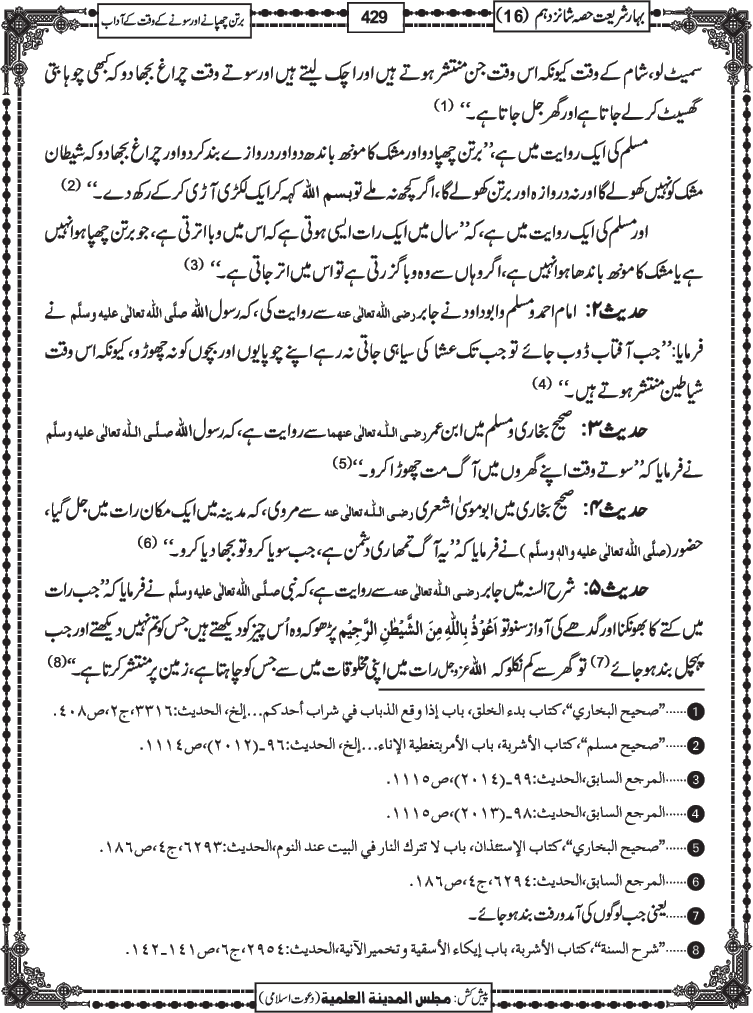 بہارِ شریعت حصہ شانزدہم (16)
429
برتن چھپانے اور سونے کے وقت کے آداب
سمیٹ لو، شام کے وقت کیونکہ اس وقت جن منتشر ہوتے ہیں اور اچک لیتے ہیں اور سوتے وقت چراغ بجھا دو کہ کبھی چوہا بتی
گھسیٹ کر لے جاتا ہے اور گھر جل جاتا ہے۔‘‘ (1)
مسلم کی ایک روایت میں ہے، ’’برتن چھپا دو اور مشک کا مونھ باندھ دو اور دروازے بند کر دو اور چراغ بجھا دو کہ شیطان
مشک کو نہیں کھولے گا اور نہ دروازہ اور برتن کھولے گا، اگر کچھ نہ ملے تو بسم اللہ کہہ کر ایک لکڑی آڑی کرکے رکھ دے۔‘‘ (2)
اور مسلم کی ایک روایت میں ہے، کہ ’’سال میں ایک رات ایسی ہوتی ہے کہ اس میں وبا اترتی ہے، جو برتن چھپا ہوا نہیں
ہے یا مشک کا مونھ باندھا ہوا نہیں ہے، اگر وہاں سے وہ وبا گزرتی ہے تو اس میں اتر جاتی ہے۔‘‘ (3)
حدیث ۲: امام احمد و مسلم و ابو داود نے جابر رضی اللہ تعالٰی عنہ سے روایت کی، کہ رسول اللہ صلَّی اللہ تعالٰی علیہ وسلَّم نے
فرمایا: ’’جب آفتاب ڈوب جائے تو جب تک عشا کی سیاہی جاتی نہ رہے اپنے چوپایوں اور بچوں کو نہ چھوڑو، کیونکہ اس وقت
شیاطین منتشر ہوتے ہیں۔‘‘ (4)
حدیث ۳: صحیح بخاری و مسلم میں ابن عمر رضی اللہ تعالٰی عنھما سے روایت ہے، کہ رسول اللہ صلَّی اللہ تعالٰی علیہ وسلَّم
نے فرمایا کہ ’’سوتے وقت اپنے گھروں میں آگ مت چھوڑا کرو۔‘‘(5)
حدیث ۴: صحیح بخاری میں ابو موسیٰ اشعری رضی اللہ تعالٰی عنہ سے مروی، کہ مدینہ میں ایک مکان رات میں جل گیا،
حضور (صلَّی اللہ تعالٰی علیہ واٰلہٖ وسلَّم) نے فرمایا کہ ’’یہ آگ تمھاری دشمن ہے، جب سویا کرو تو بجھا دیا کرو۔‘‘ (6)
حدیث ۵: شرح السنہ میں جابر رضی اللہ تعالٰی عنہ سے روایت ہے، کہ نبی صلَّی اللہ تعالٰی علیہ وسلَّم نے فرمایا کہ ’’جب رات
میں کتے کا بھونکنا اور گدھے کی آواز سنو تو اَعُوْذُ بِاللّٰہِ مِنَ الشَّیْطٰنِ الرَّجِیْمِ پڑھو کہ وہ اُس چیز کو دیکھتے ہیں جس کو تم نہیں دیکھتے اور جب
پہچل بند ہو جائے (7) تو گھر سے کم نکلو کہ اللہ عزوجل رات میں اپنی مخلوقات میں سے جس کو چاہتا ہے، زمین پر منتشر کرتا ہے۔‘‘(8)
1......”صحيح البخاري“، كتاب بدء الخلق، باب إذا وقع الذباب في شراب أحدكم...إلخ، الحديث:٣٣١٦، ج٢، ص٤٠٨.
2......”صحيح مسلم“، كتاب الأشربة، باب الأمر بتغطية الإناء...إلخ، الحديث:٩٦ـ(٢٠١٢)، ص١١١٤.
3......المرجع السابق، الحديث:٩٩ـ(٢٠١٤)، ص١١١٥.
4......المرجع السابق، الحديث:٩٨ـ(٢٠١٣)، ص١١١٥.
5......”صحيح البخاري“، كتاب الإستئذان، باب لا تترك النار في البيت عند النوم، الحديث:٦٢٩٣، ج٤، ص١٨٦.
6......المرجع السابق، الحديث:٦٢٩٤، ج٤، ص١٨٦.
7......یعنی جب لوگوں کی آمد و رفت بند ہو جائے۔
8......”شرح السنة“، كتاب الأشربة، باب إيكاء الأسقية وتخمير الآنية، الحديث:٢٩٥٤، ج٦، ص١٤١ـ١٤٢.
پیش کش: مجلس المدینة العلمیة (دعوتِ اسلامی)